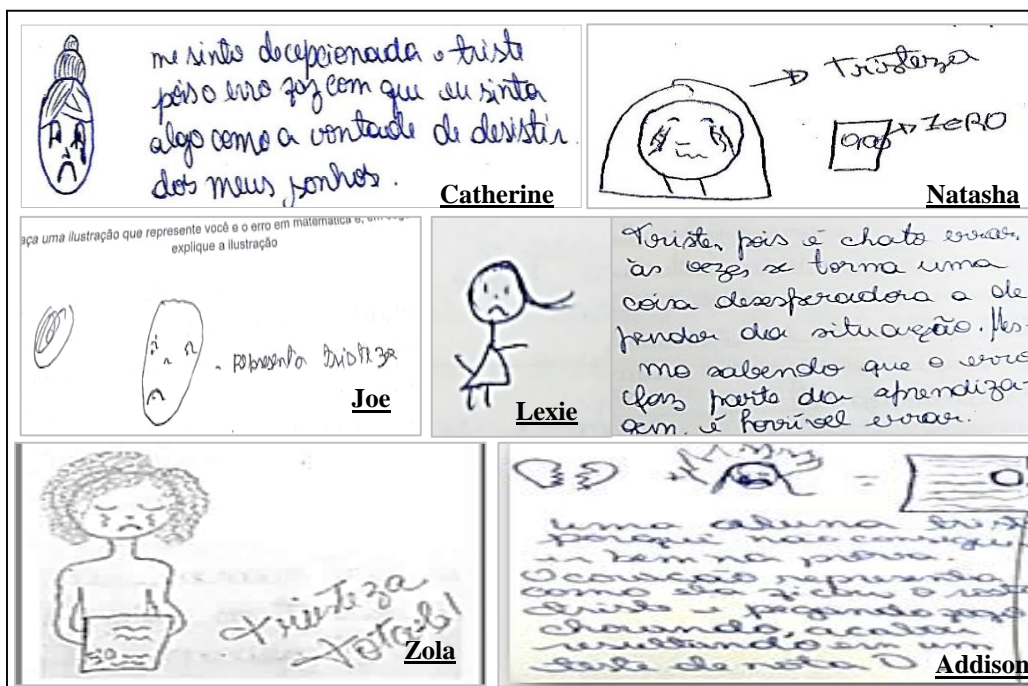 me sinto decepcionada e triste
pois o erro faz com que eu sinta
algo como a vontade de desistir
dos meus sonhos.
Catherine
Tristeza
ZERO
Natasha
aça uma ilustração que represente você e o erro em matemática e,
explique a ilustração
representa tristeza
Joe
Triste, pois é chato errar,
às vezes se torna uma
coisa desesperadora a de
pender da situação. Mes-
mo sabendo que o erro
faz parte da aprendiza-
gem. é horrível errar.
Lexie
50
Tristeza
total!
Zola
0
uma aluna trist
porque não consegui
ir bem na prova.
O coração representa
como ela ficou o rosto
triste e pegando fogo
chorando, acabou
resultando em u
teste de nota 0
Addison